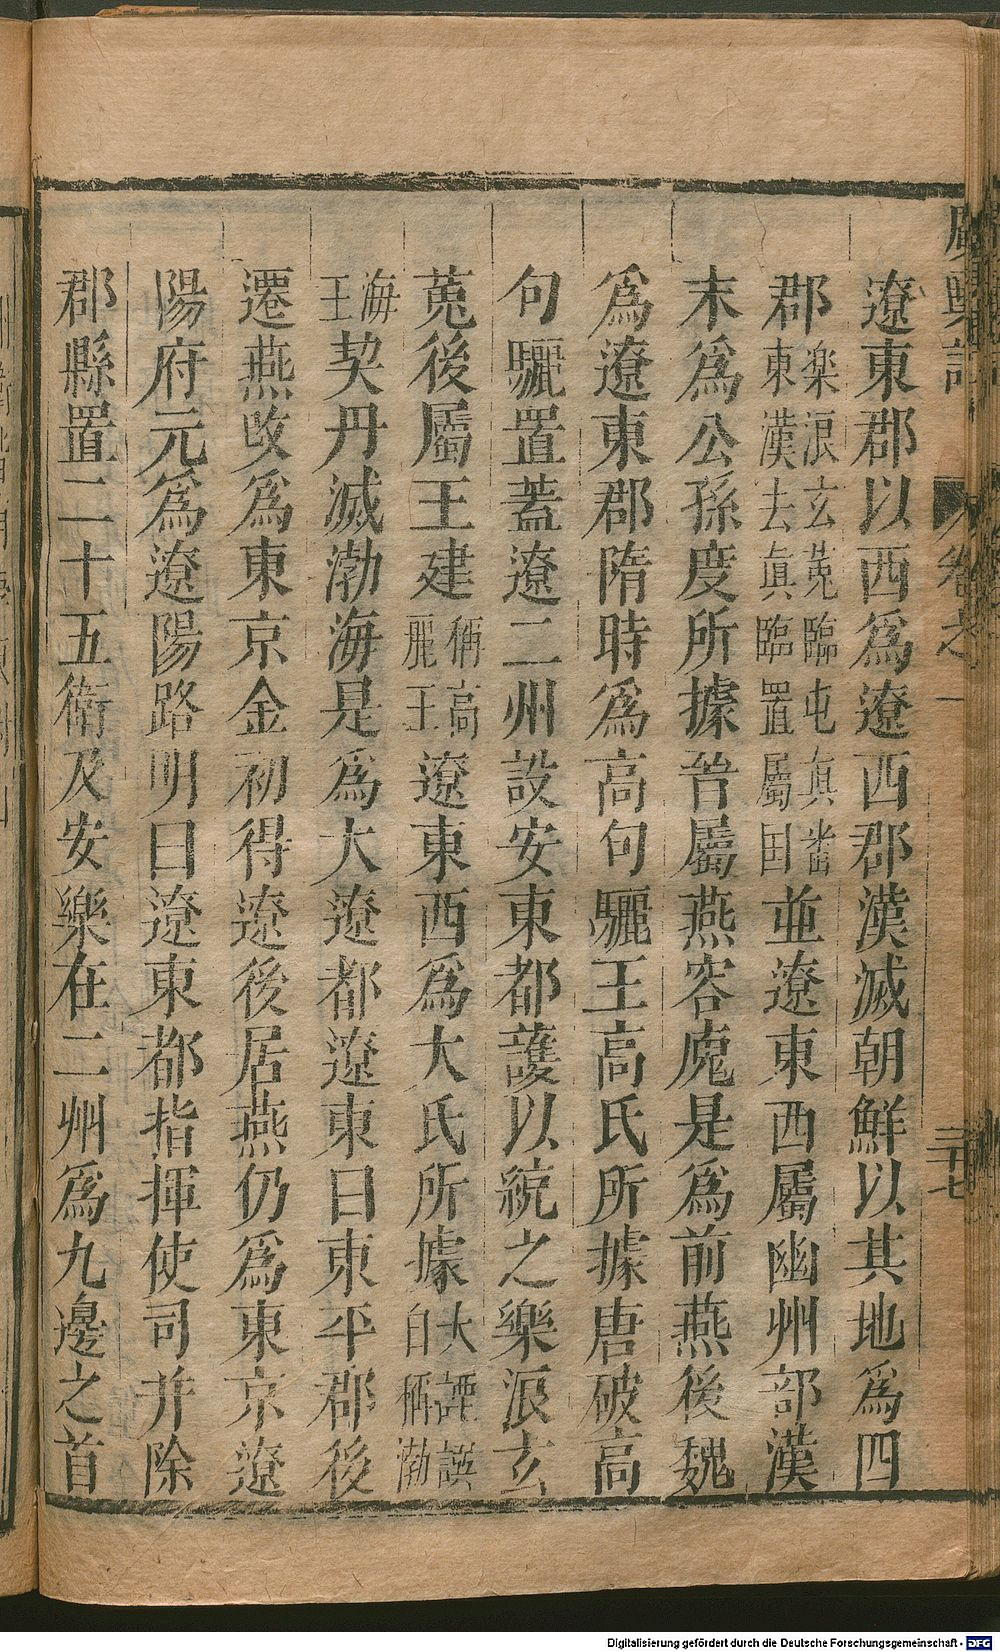 遼東郡以西爲遼西郡漢滅朝鮮以其地爲四
郡樂浪玄菟臨屯真畨東漢去真臨置屬国並遼東西屬幽州部漢
末爲公孫度所據晉屬燕容廆是爲前燕後魏
爲遼東郡隋時爲高句驪王高氏所據唐破高
句驪置蓋遼二州設安東都護以統之樂浪玄
菟後屬王建稱高麗王遼東西爲大氏所據大諲譔自稱渤
海王契丹滅渤海是爲大遼都遼東曰東平郡後
遷燕改爲東京金初得遼後居燕仍爲東京遼
陽府元爲遼陽路明曰遼東都指揮使司并除
郡縣置二十五衛及安樂在二州爲九邊之首
輿記
卷之一
三十七
Digitalisierung gefördert durch die Deutsche Forschungsgemeinschaft - DFG